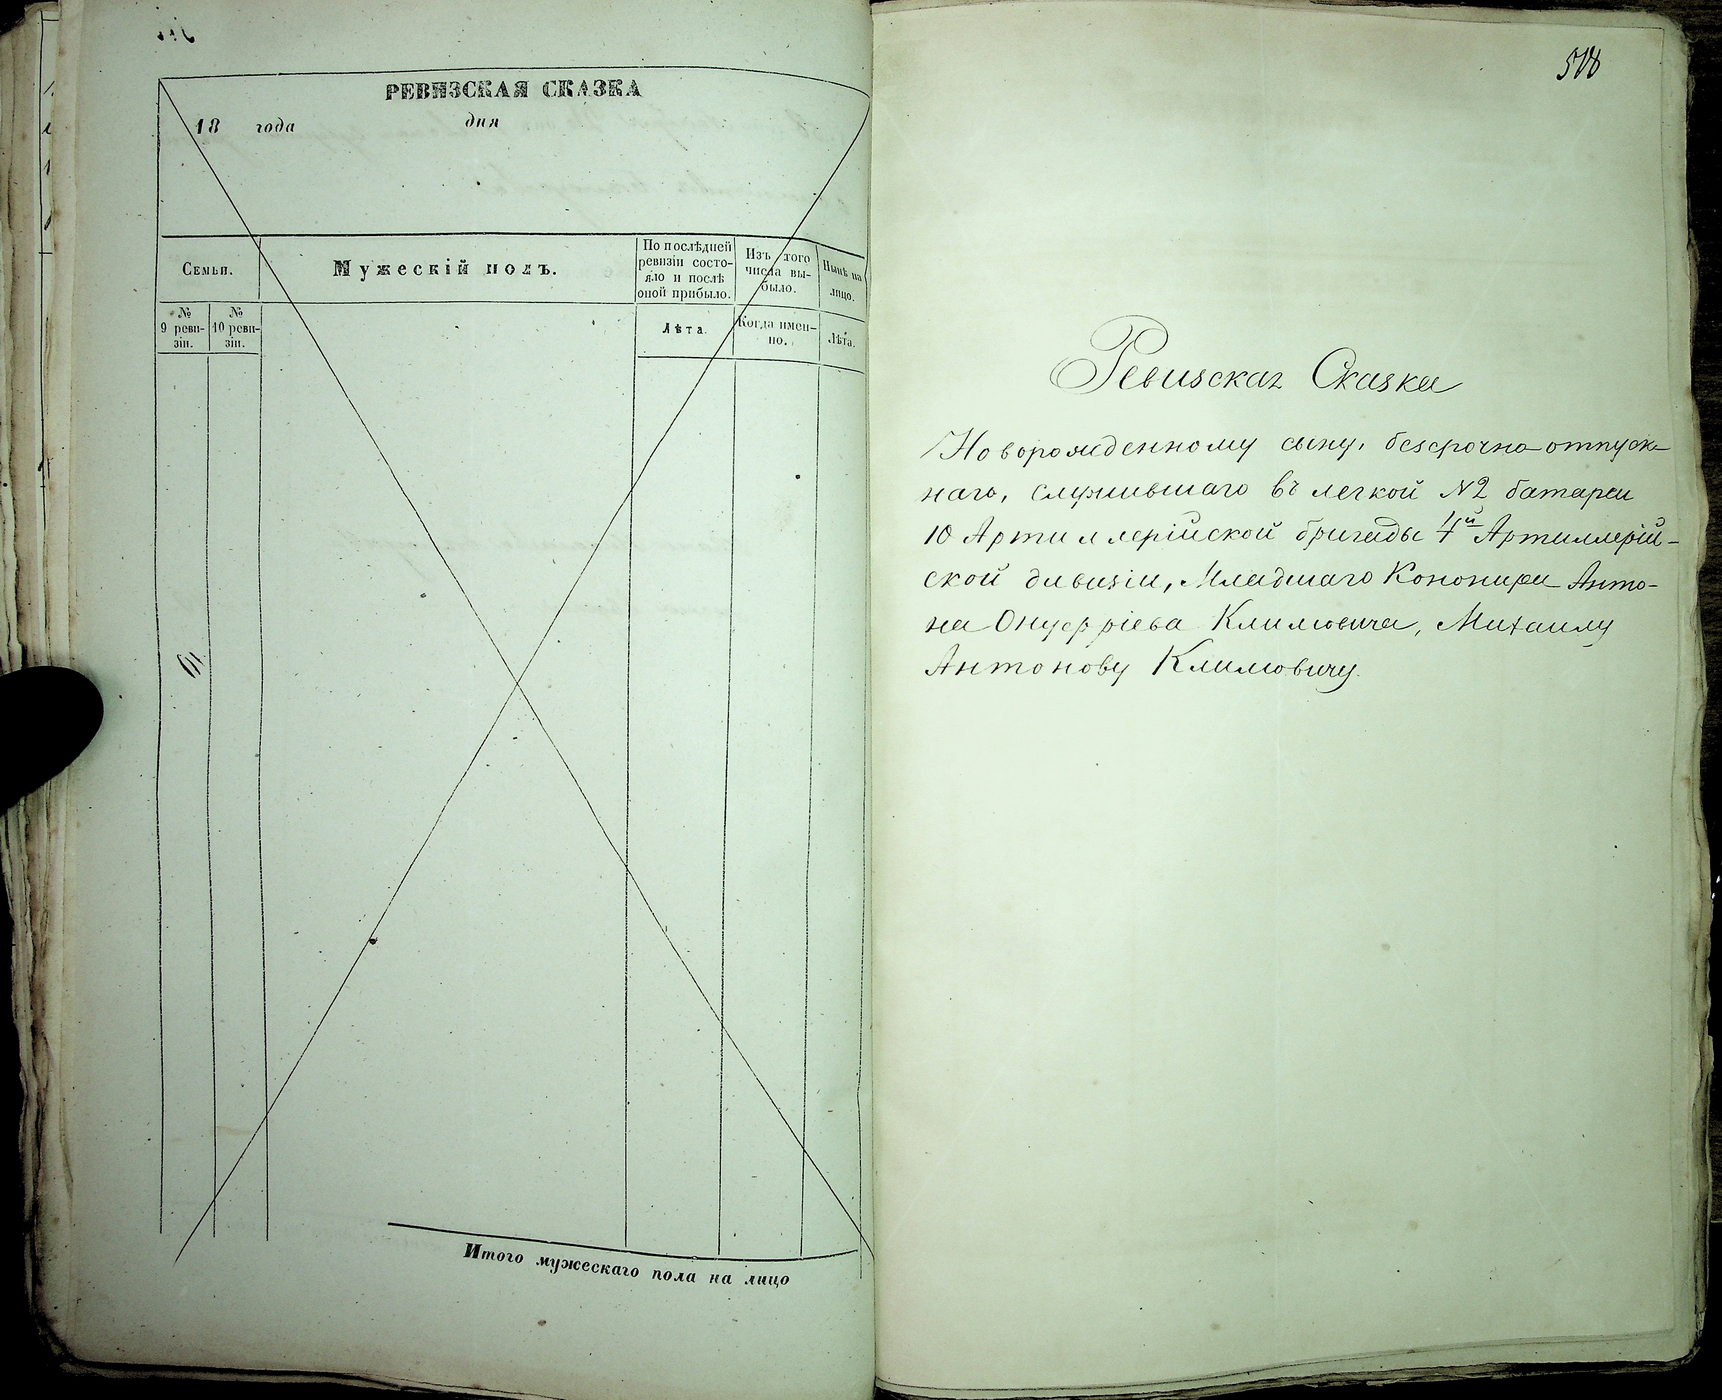 РЕВИЗСКАЯ СКАЗКА
18 года дня
Семьи.
Мужескій полъ.
По послѣдней
ревизіи состо-
яло и послѣ
оной прибыло.
Изъ того
числа вы-
было.
Нынѣ на
лицо.
№
9 реви-
зіи.
№
10 реви-
зіи.
Лѣта.
Когда имен-
но.
Лѣта.
Итого мужескаго пола на лицо
Ревизская Сказка
Новорожденному сыну, безсрочно-отпуск-
наго, служившаго въ легкой №2 батареи
10 Артиллерійской бригады 4й Артиллерій-
ской дивизіи, Младшаго Кононира Анто-
на Онуфріева Климовича, Михаилу
Антонову Климовичу.